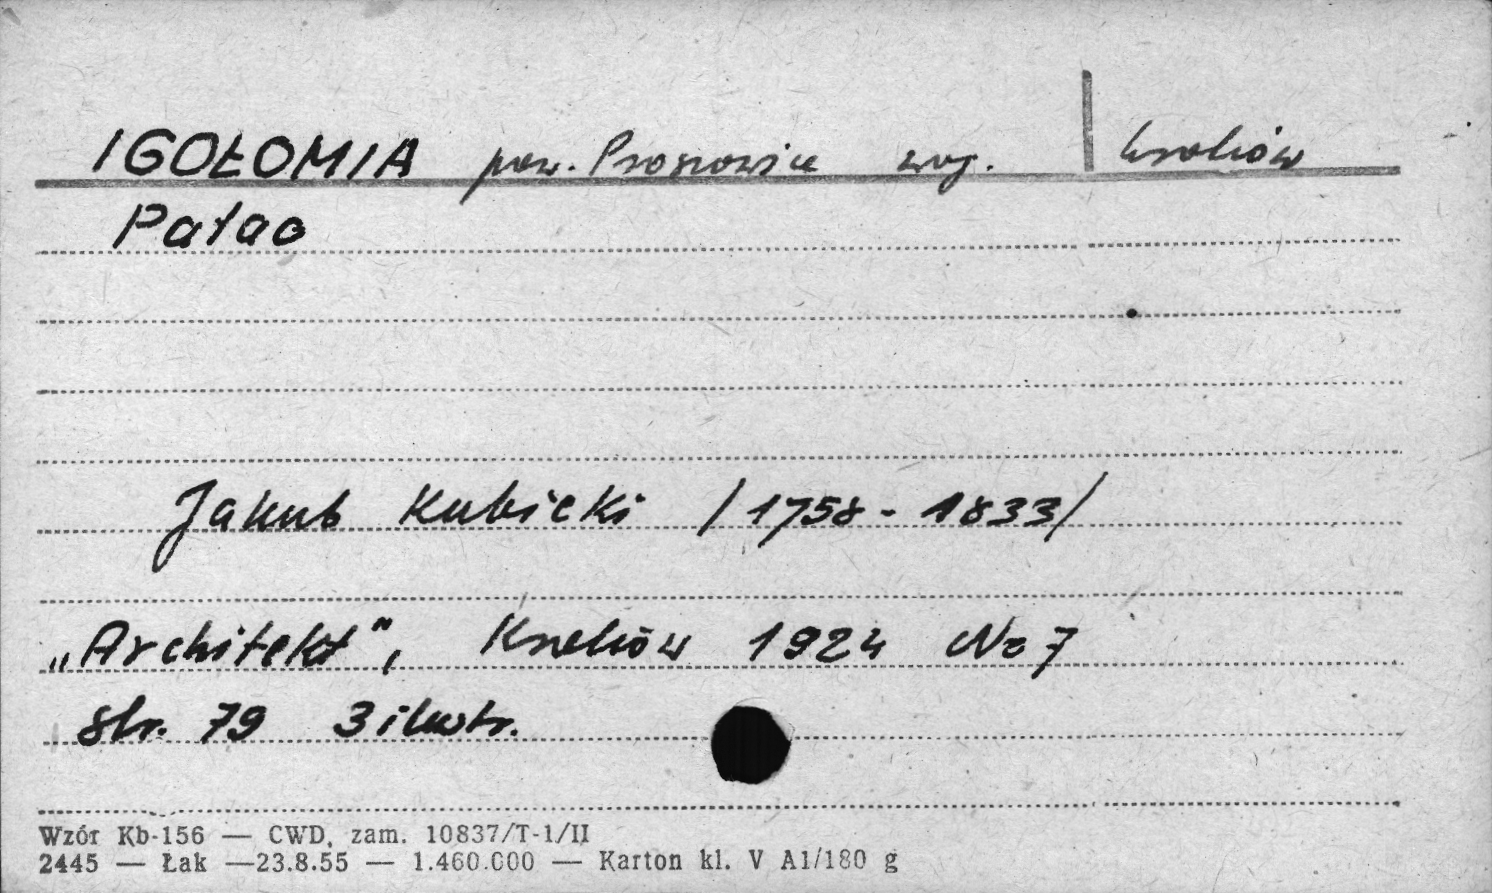 IGOŁOMIA pow. Proszowice woj. Kraków
Pałac
Jakub Kubicki /1758 - 1833/
„Architekt", Kraków 1924 Nr 7
str. 79 3 ilustr.
Wzór Kb-156 — CWD, zam. 10837/T-1/II
2445 — Łak —23.8.55 — 1.460.000 — Karton kl. V A1/180 g